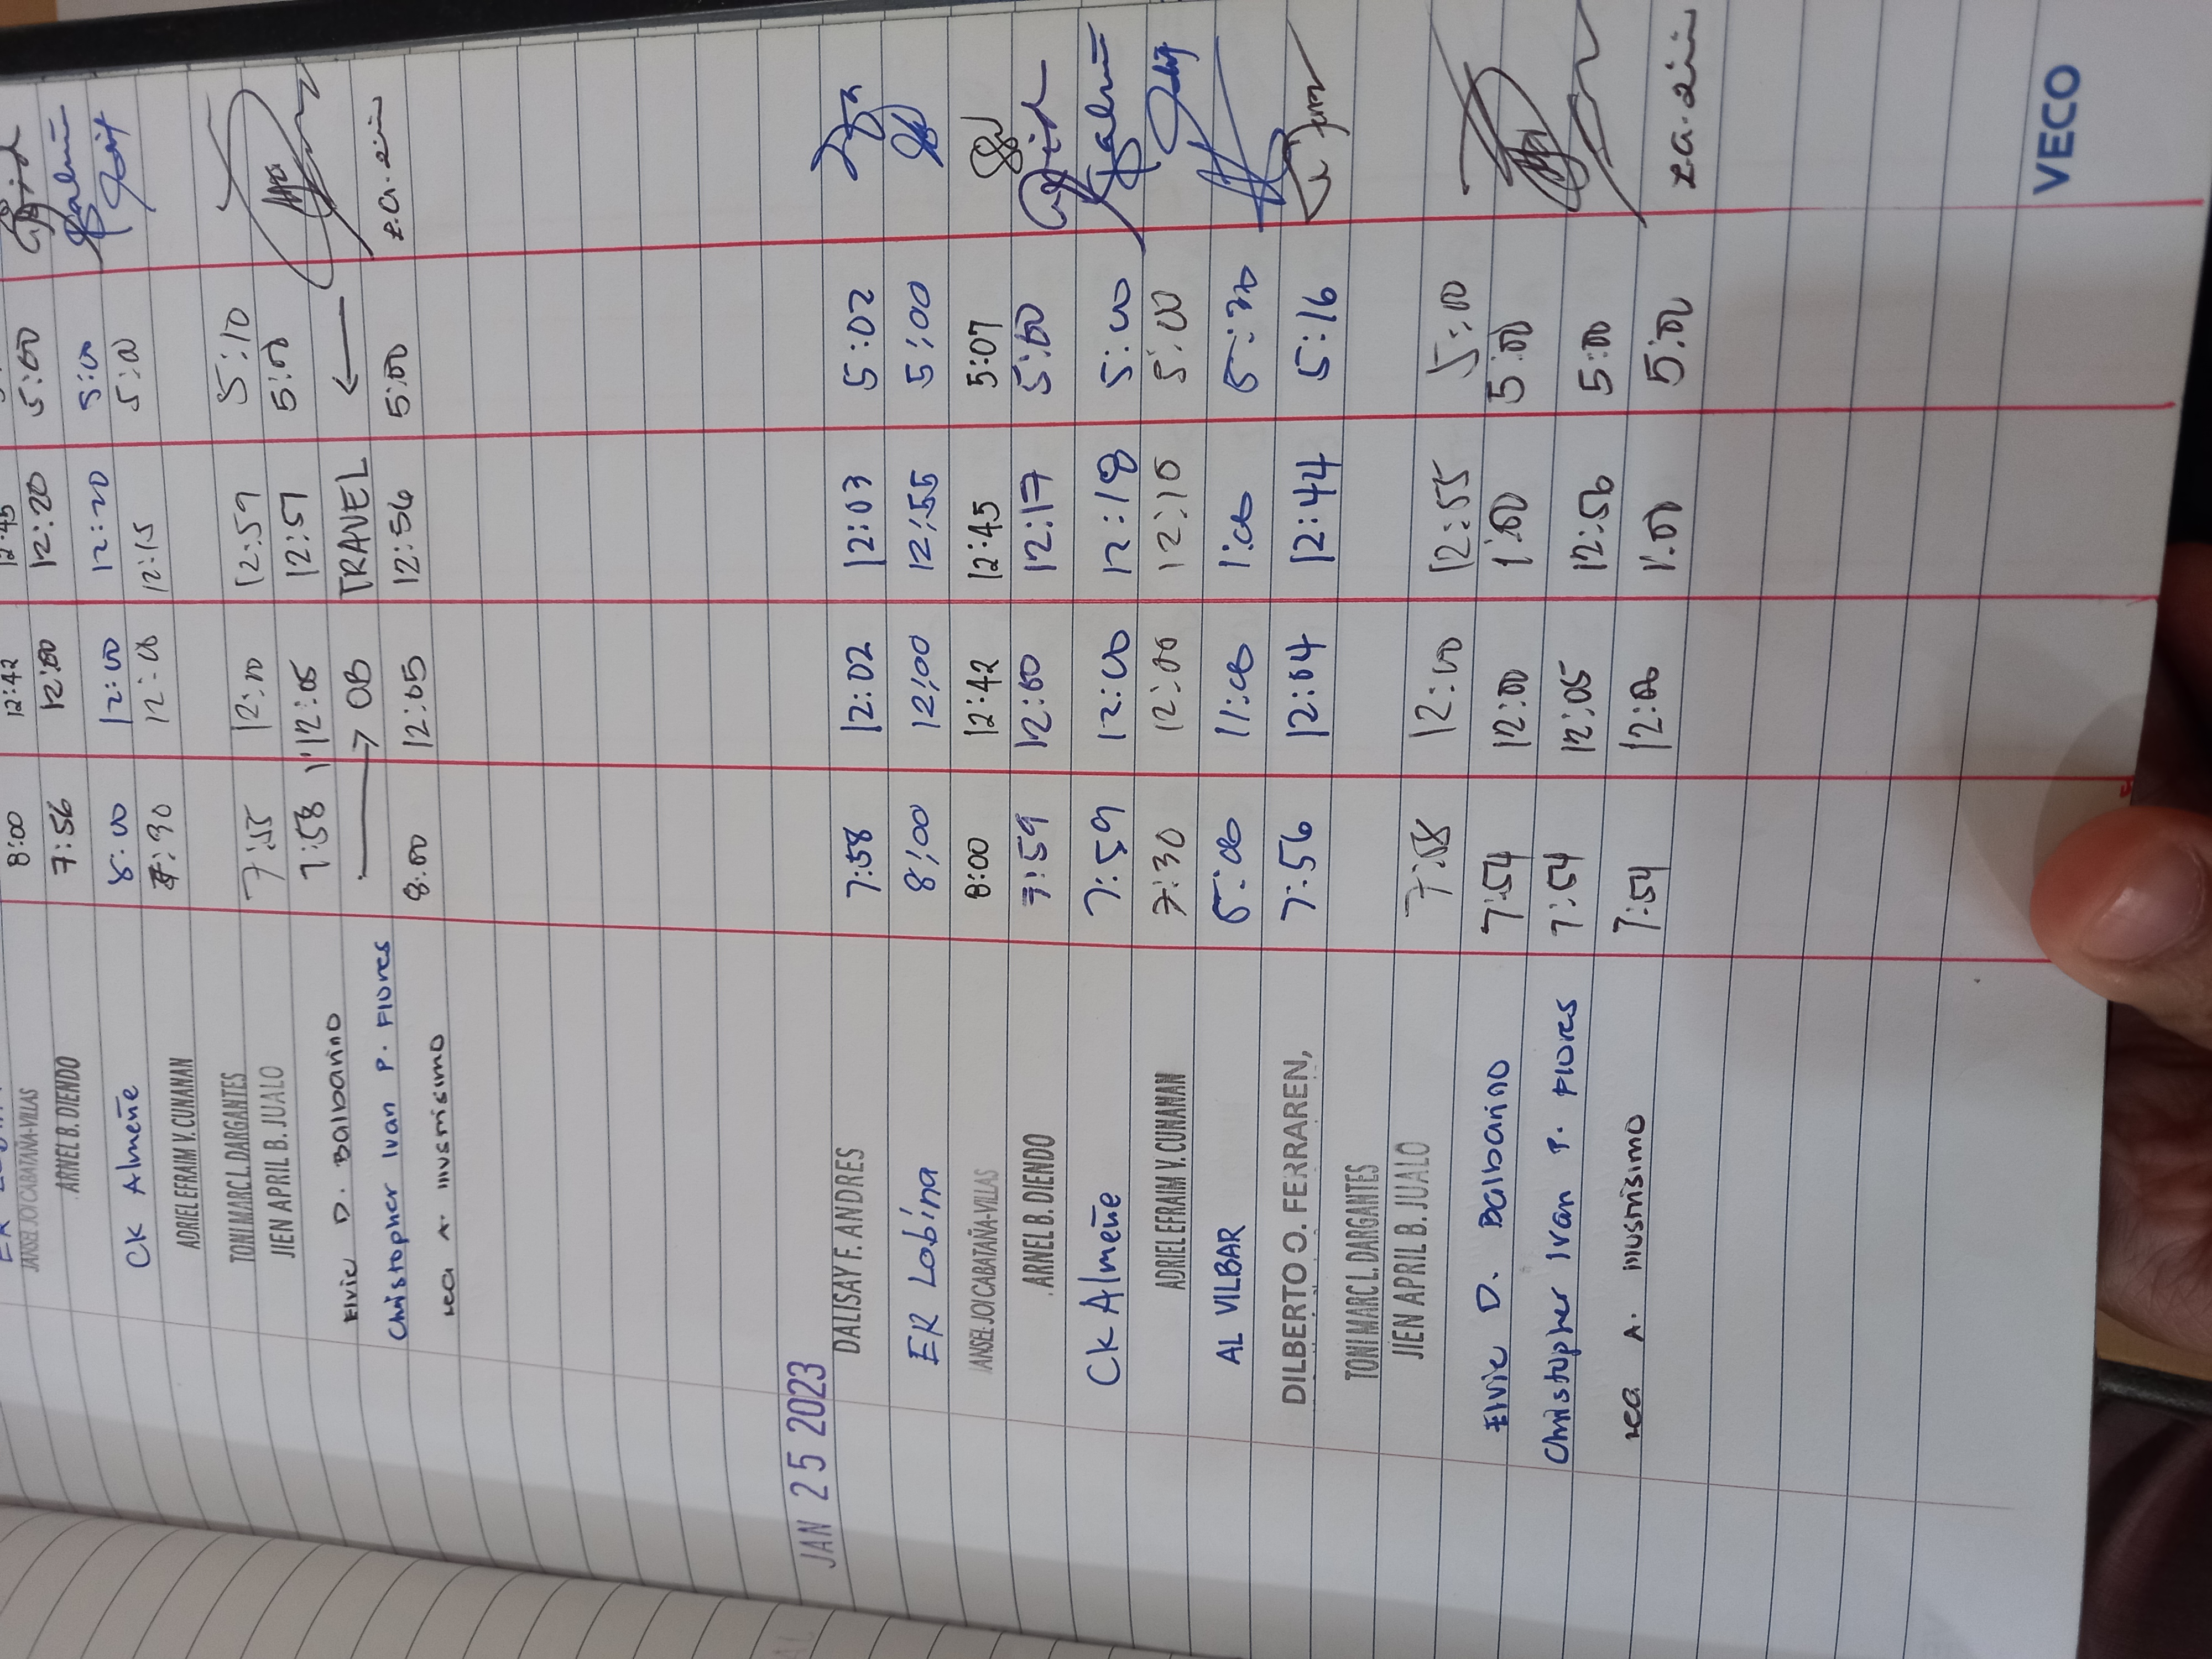 JANSEL JOI CABATAÑA-VILLAS 8:00 12:42 12:45
ARNEL B. DIENDO 7:56 12:00 12:20 5:00
CK Almeñe 8:00 12:00 12:20 5:00
ADRIEL EFRAIM V. CUNANAN 7:30 12:00 12:15 5:00
TONI MARC L. DARGANTES
JIEN APRIL B. JUALO 7:55 12:00 12:59 5:10
Elvie D. Balbarino 7:58 12:05 12:57 5:00
Christopher Ivan P. Flores → OB TRAVEL ←
Lea A. Illustrisimo 8:00 12:05 12:56 5:00
JAN 25 2023
DALISAY F. ANDRES 7:58 12:02 12:03 5:02
ER Lobina 8:00 12:00 12:55 5:00
JANSEL JOI CABATAÑA-VILLAS 8:00 12:42 12:45 5:07
ARNEL B. DIENDO 7:59 12:00 12:17 5:00
CK Almeñe 7:59 12:00 12:18 5:00
ADRIEL EFRAIM V. CUNANAN 7:30 12:00 12:10 5:00
AL VILBAR 11:00 1:00
DILBERTO O. FERRAREN, 7:56 12:04 12:44 5:16
TONI MARC L. DARGANTES
JIEN APRIL B. JUALO 7:58 12:00 12:55 5:10
Elvie D. Balbarino 7:54 12:00 1:00 5:00
Christopher Ivan P. Flores 7:54 12:05 12:56 5:00
Lea A. Illustrisimo 7:54 12:00 1:00 5:00
VECO